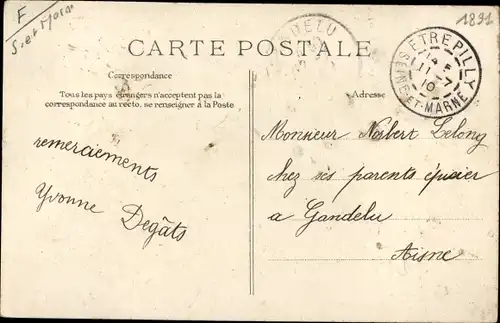 F
S. et Marne
1891
GANDELU
CARTE POSTALE
ETREPILLY
14 E
11 - 7
10
SEINE-ET-MARNE
Correspondance
Tous les pays étrangers n'acceptent pas la
correspondance au recto, se renseigner à la Poste
Adresse
remerciements
Yvonne Degâts
Monsieur Norbert Lelong
chez ses parents épicier
a Gandelu
Aisne